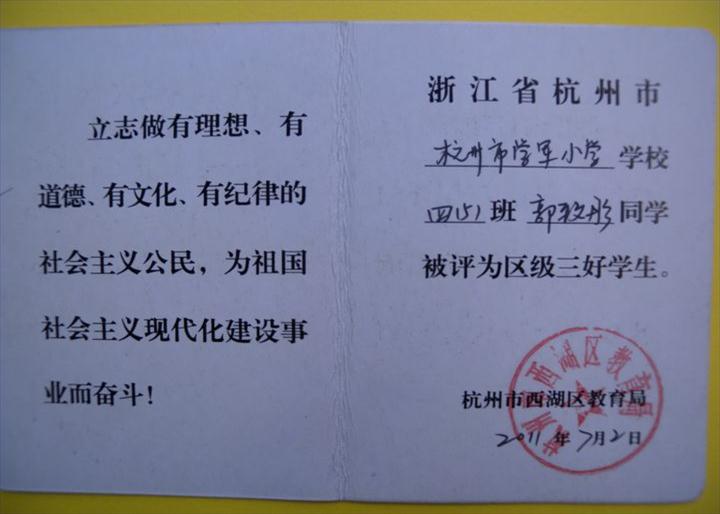 立志做有理想、有
道德、有文化、有纪律的
社会主义公民，为祖国
社会主义现代化建设事
业而奋斗！
浙江省杭州市
杭州市学军小学学校
四(5)班 郭 彤同学
被评为区级三好学生。
杭州市西湖区教育局
2011年7月2日
杭州市西湖区教育局